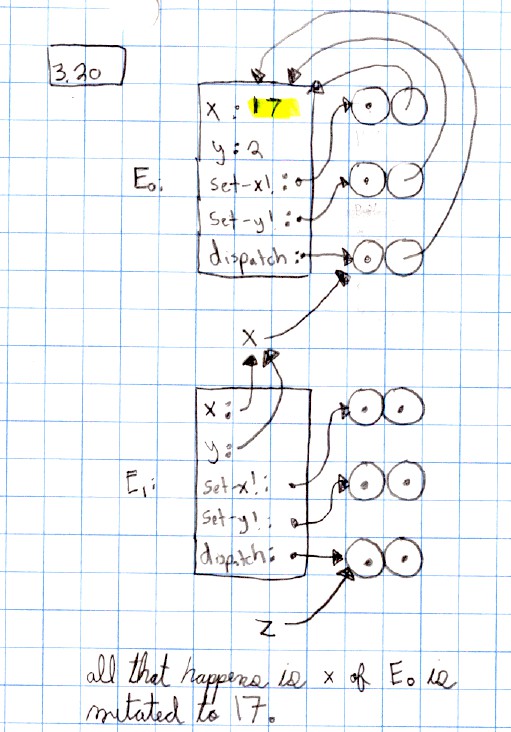 3.20
x : 17
y : 2
E₀:
set-x! :
set-y! :
dispatch :
x
x :
y :
E₁:
set-x! :
set-y! :
dispatch :
z
all that happens is x of E₀ is
mutated to 17.